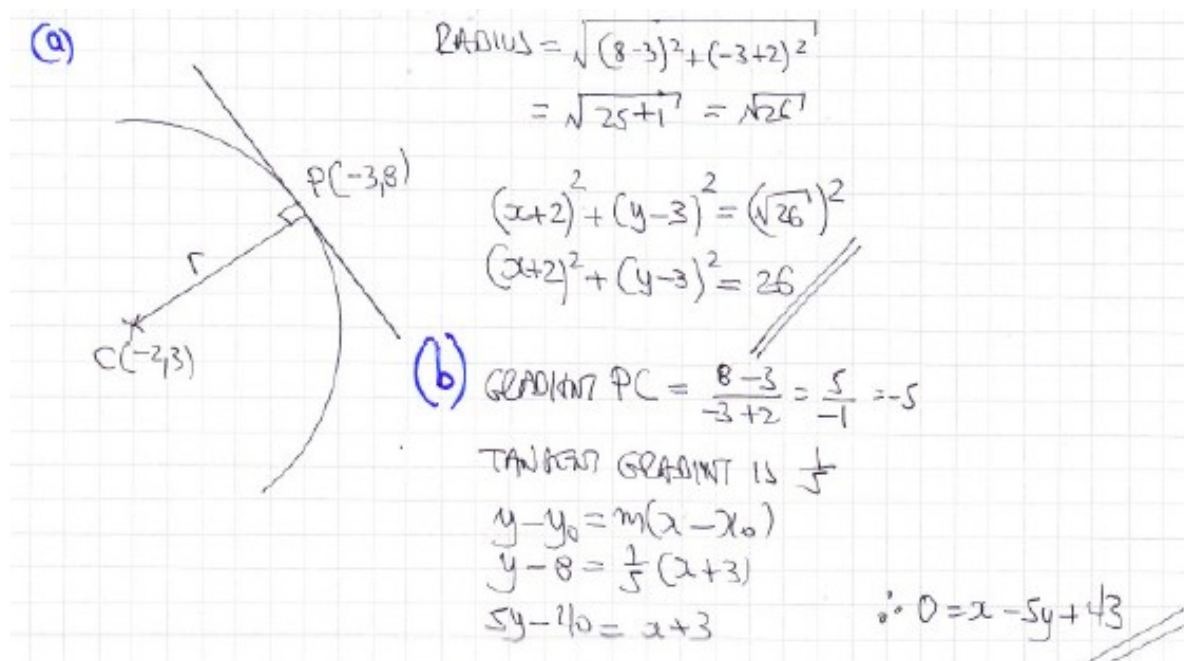 (a)
RADIUS = √((8-3)²+(-3+2)²)
= √(25+1) = √26
P(-3,8)
(x+2)² + (y-3)² = (√26)²
r
(x+2)² + (y-3)² = 26
C(-2,3)
(b) GRADIENT PC = (8-3)/(-3+2) = 5/-1 = -5
TANGENT GRADINT IS 1/5
y-y₀ = m(x-x₀)
y-8 = 1/5 (x+3)
5y-40 = x+3
∴ 0 = x-5y+43